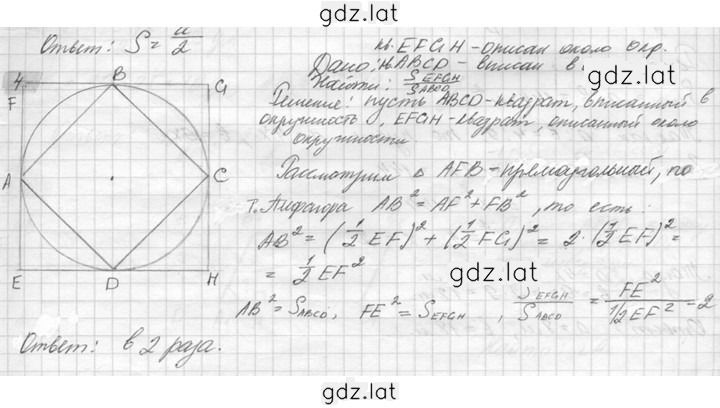 gdz.lat
Ответ: S = a/2
кв. EFGH - описан около окр.
Дано: кв. ABCD - вписан в
Найти: S EFGH / S ABCD
4
B
G
F
A
C
E
D
H
Решение: пусть ABCD - квадрат, вписанный в
окружность, EFGH - квадрат, описанный около
окружности
Рассмотрим △ AFB - прямоугольный, по
т. Пифагора AB² = AF² + FB², то есть:
AB² = (1/2 EF)² + (1/2 FG)² = 2·(1/2 EF)² =
= 1/2 EF²
gdz.lat
AB² = S ABCD, FE² = S EFGH, S EFGH / S ABCD = FE² / 1/2 EF² = 2
Ответ: в 2 раза.
gdz.lat